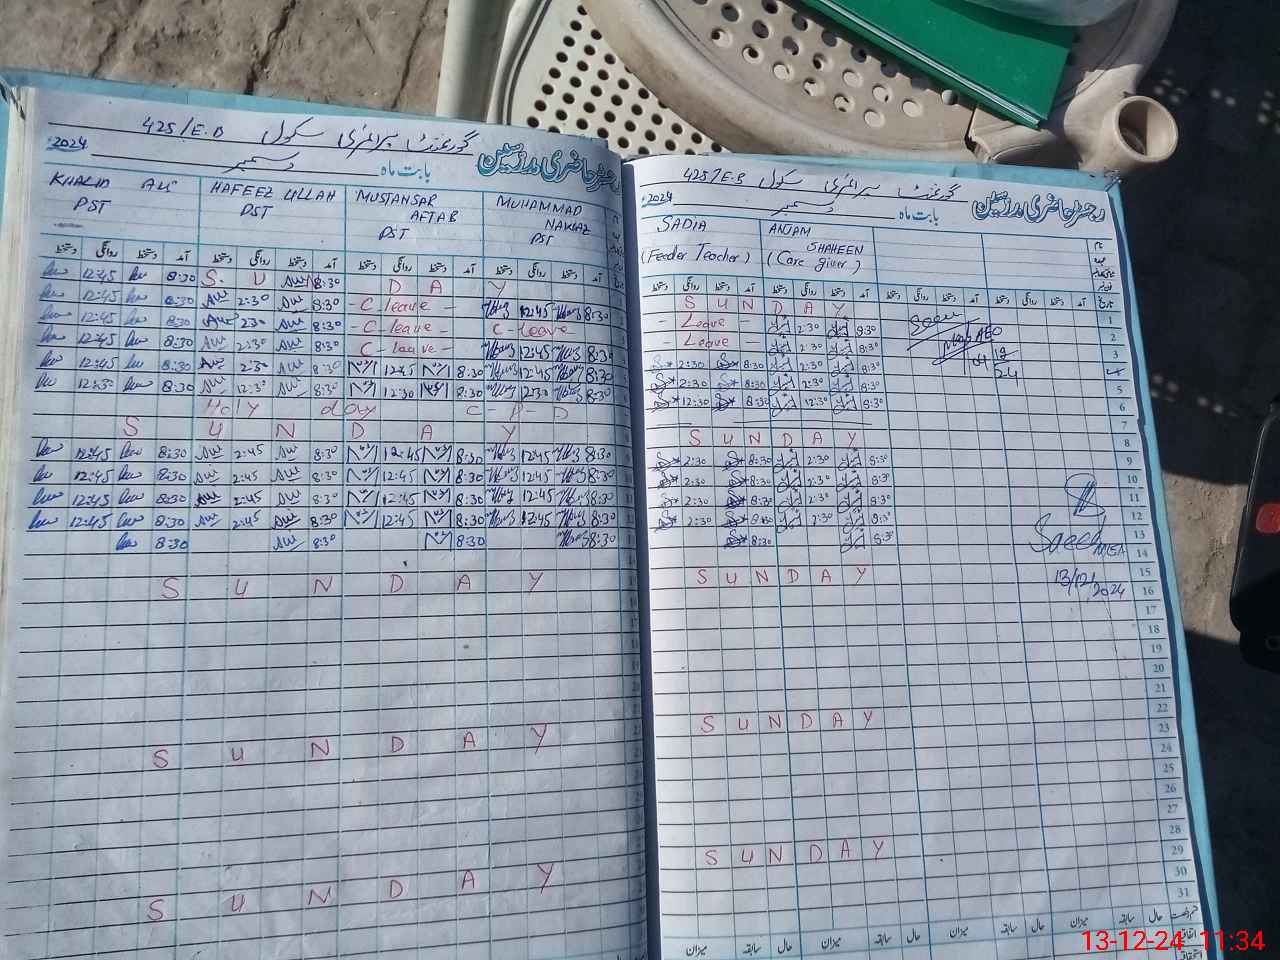 رجسٹر حاضری مدرسین گورنمنٹ پرائمری سکول 425/E.B
بابت ماہ دسمبر 2024
KHALID ALI PST
HAFEEZ ULLAH PST
MUSTANSAR AFTAB PST
MUHAMMAD NAWAZ PST
دستخط روانگی دستخط آمد دستخط روانگی دستخط آمد دستخط روانگی دستخط آمد دستخط روانگی دستخط آمد
S U N D A Y
12:45 8:30 2:30 8:30 - C. leave - 12:45 8:30
12:45 8:30 2:30 8:30 - C - leave - C - leave
12:45 8:30 2:30 8:30 C - leave - 12:45 8:30
12:45 8:30 2:30 8:30 12:45 8:30 12:45 8:30
12:30 8:30 12:30 8:30 12:30 8:30 12:30 8:30
Holy day C - P - D
S U N D A Y
12:45 8:30 2:45 8:30 12:45 8:30 12:45 8:30
12:45 8:30 2:45 8:30 12:45 8:30 12:45 8:30
12:45 8:30 2:45 8:30 12:45 8:30 12:45 8:30
12:45 8:30 2:45 8:30 12:45 8:30 12:45 8:30
8:30 8:30 8:30 8:30
S U N D A Y
S U N D A Y
S U N D A Y
رجسٹر حاضری مدرسین گورنمنٹ پرائمری سکول 425/E.B
بابت ماہ دسمبر 2024
SADIA (Feeder Teacher)
ANJAM SHAHEEN (Care giver)
دستخط روانگی دستخط آمد دستخط روانگی دستخط آمد دستخط روانگی دستخط آمد دستخط روانگی دستخط آمد تاریخ
S U N D A Y 1
- Leave - 2:30 8:30 2
- Leave - 2:30 8:30 3
2:30 8:30 2:30 8:30 4
2:30 8:30 2:30 8:30 5
12:30 8:30 12:30 8:30 6
7
S U N D A Y 8
2:30 8:30 2:30 8:30 9
2:30 8:30 2:30 8:30 10
2:30 8:30 2:30 8:30 11
2:30 8:30 2:30 8:30 12
8:30 8:30 13
Saeed MEA
14
S U N D A Y 15
13/12/2024
16
17
18
19
20
21
S U N D A Y 22
23
24
25
26
27
28
S U N D A Y 29
30
31
میزان سابقہ حال میزان سابقہ حال میزان سابقہ حال میزان سابقہ حال
13-12-24 11:34